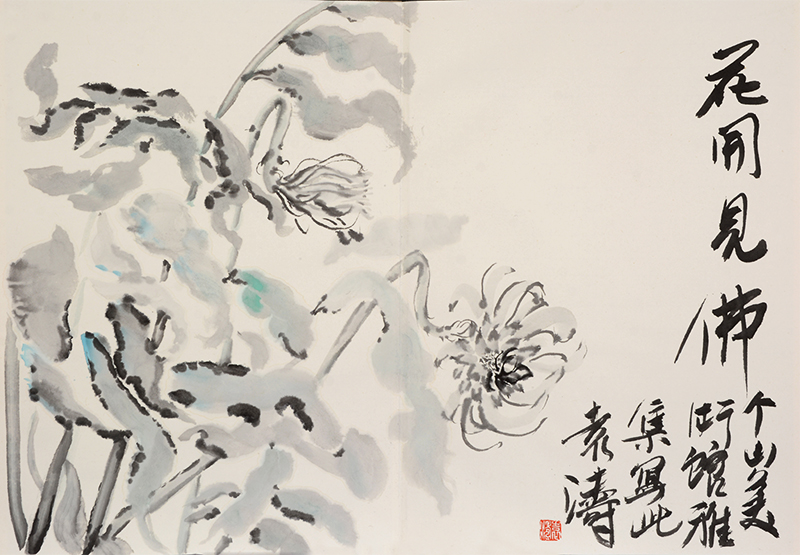 花開見佛
个山美
術館雅
集寫此
袁濤